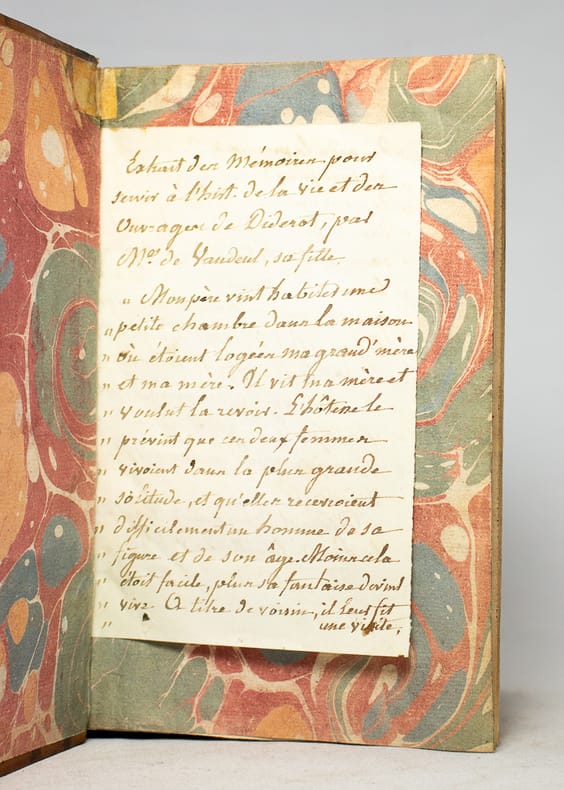 Extrait des Mémoires pour
servir à l'hist. de la vie et des
Ouvrages de Diderot, par
Me. de Vandeul, sa fille.
„ Mon père vint habiter une
„ petite chambre dans la maison
„ où étoient logées ma grand'mère
„ et ma mère. Il vit ma mère et
„ voulut la revoir. L'hôtesse le
„ prévint que ces deux femmes
„ vivoient dans la plus grande
„ solitude, et qu'elles recevroient
„ difficilement un homme de sa
„ figure et de son âge. Moins cela
„ étoit facile, plus sa fantaisie devint
„ vive. A titre de voisin, il leur fit
„ une visite,